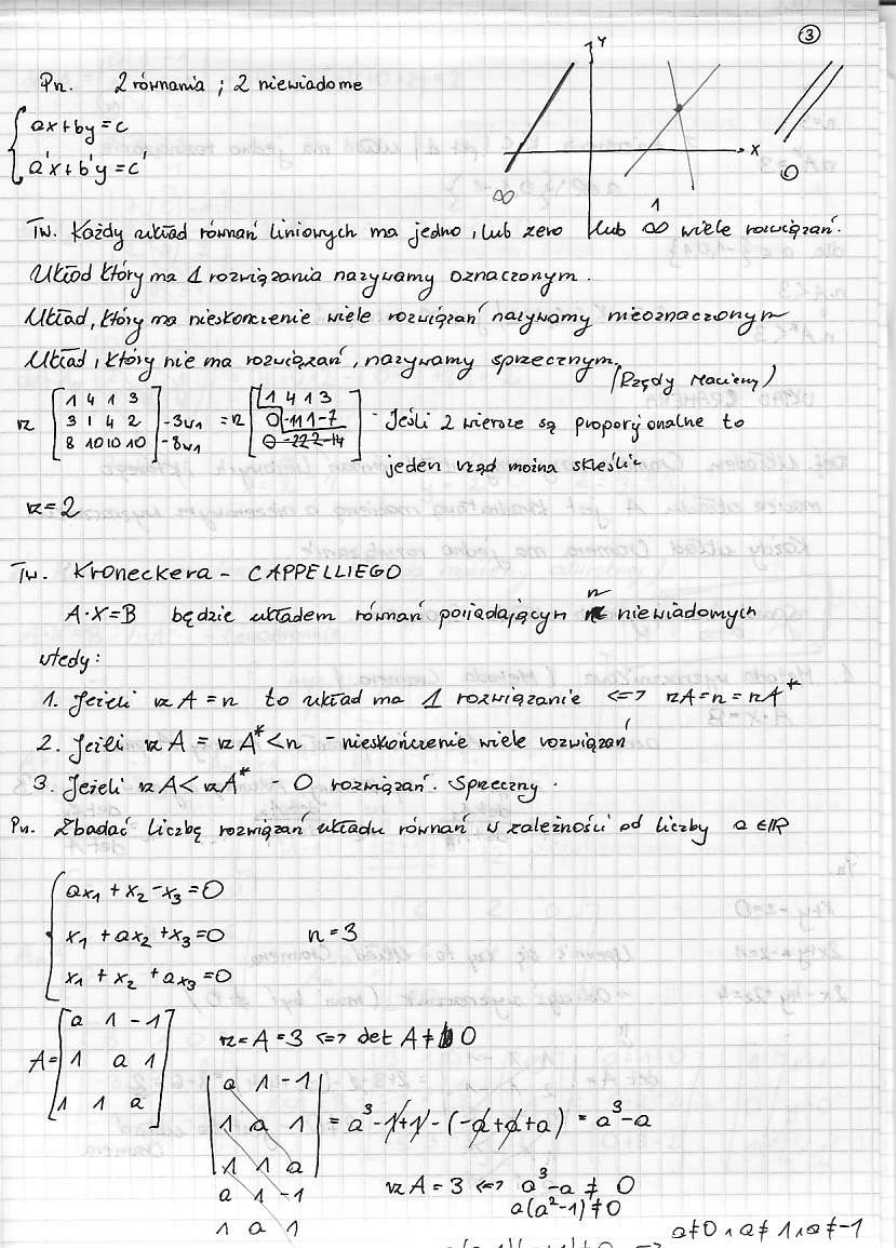 ③
Pn. 2 równania ; 2 niewiadome
ax+by=c
a'x+b'y=c'
Y
X
∞
1
0
Tw. Każdy układ równań liniowych ma jedno, lub zero lub ∞ wiele rozwiązań.
Układ który ma 1 rozwiązania nazywamy oznaczonym.
Układ, który ma nieskonczenie wiele rozwiązań nazywamy nieoznaczonym
Układ, który nie ma rozwiązań, nazywamy sprzecznym.
(Rzędy Macierzy)
rz [1 4 1 3] = rz [1 4 1 3]
[3 1 4 2] -3w1 [0 -11 1 -7] - Jeśli 2 wiersze są proporcjonalne to
[8 10 10 10] -8w1 [0 -22 2 -14] jeden rząd można skreślić
rz=2
Tw. Kroneckera - CAPPELLIEGO
A·X=B będzie układem równań posiadającym n niewiadomych
wtedy:
1. Jeżeli rz A = n to układ ma 1 rozwiązanie <=> rzA=n=rzA*
2. Jeżeli rz A = rz A* < n - nieskończenie wiele rozwiązań
3. Jeżeli rz A < rzA* - 0 rozwiązań. Sprzeczny.
Pn. Zbadać liczbę rozwiązań układu równań w zależności od liczby a ∈ℝ
ax₁ + x₂ - x₃ = 0
x₁ + ax₂ + x₃ = 0 n = 3
x₁ + x₂ + ax₃ = 0
A= [a 1 -1]
[1 a 1]
[1 1 a]
rz=A=3 <=> det A ≠ 0
|a 1 -1|
|1 a 1| = a³ -1+1 -(-a+a+a) = a³-a
|1 1 a|
a 1 -1
1 a 1
rz A = 3 <=> a³-a ≠ 0
a(a²-1)≠0
a≠0 ∧ a≠1 ∧ a≠-1